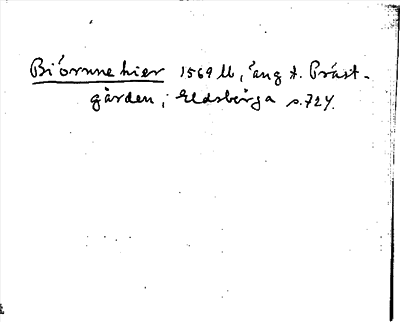 Biörnne kier 1569 lb, äng t. Präst-
gården, i Eldsberga s. 724.